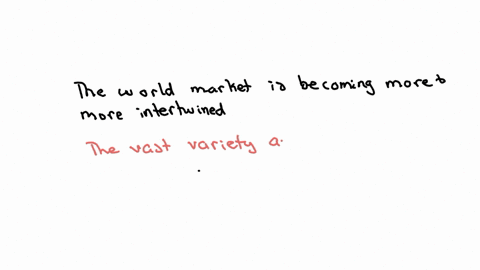 The world market is becoming more &
more intertwined
The vast variety a